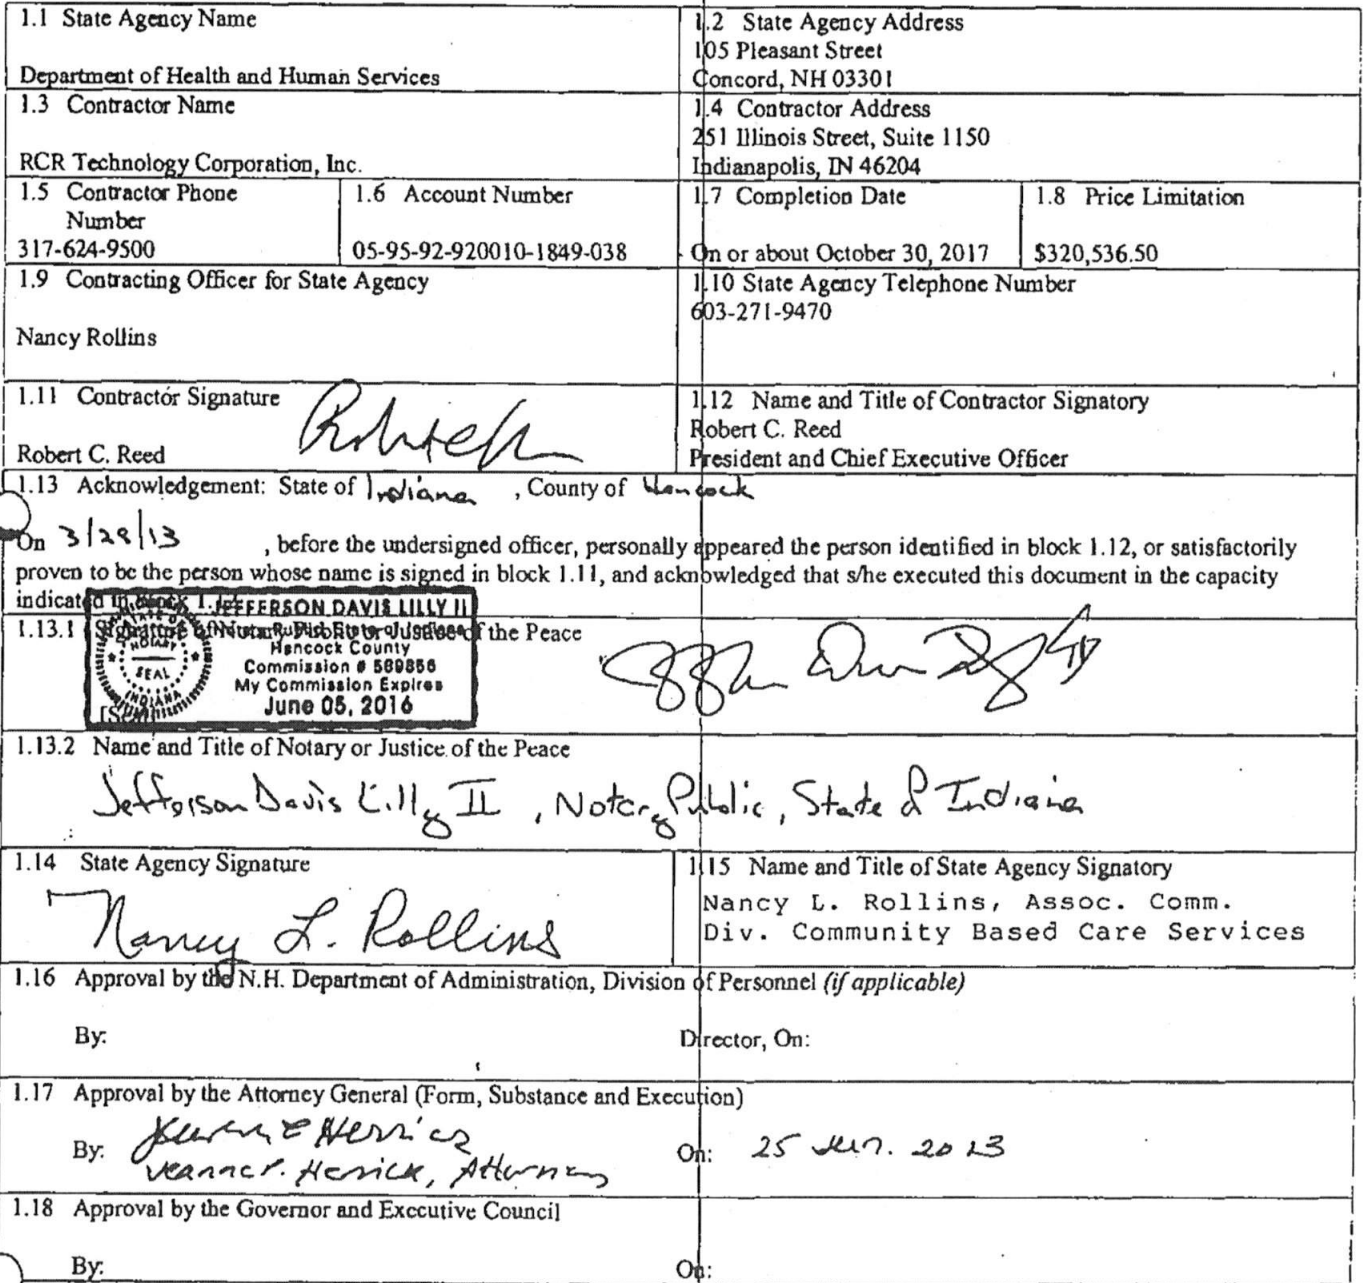 1.1 State Agency Name
Department of Health and Human Services
1.2 State Agency Address
105 Pleasant Street
Concord, NH 03301
1.3 Contractor Name
RCR Technology Corporation, Inc.
1.4 Contractor Address
251 Illinois Street, Suite 1150
Indianapolis, IN 46204
1.5 Contractor Phone
Number
317-624-9500
1.6 Account Number
05-95-92-920010-1849-038
1.7 Completion Date
On or about October 30, 2017
1.8 Price Limitation
$320,536.50
1.9 Contracting Officer for State Agency
Nancy Rollins
1.10 State Agency Telephone Number
603-271-9470
1.11 Contractor Signature
Robert C. Reed
1.12 Name and Title of Contractor Signatory
Robert C. Reed
President and Chief Executive Officer
1.13 Acknowledgement: State of Indiana , County of Hancock
On 3/28/13 , before the undersigned officer, personally appeared the person identified in block 1.12, or satisfactorily
proven to be the person whose name is signed in block 1.11, and acknowledged that s/he executed this document in the capacity
indicated in block
JEFFERSON DAVIS LILLY II
1.13.1 Signature of Notary Public or Justice of the Peace
Hancock County
Commission # 569856
My Commission Expires
June 05, 2016
NOTARY
SEAL
INDIANA
1.13.2 Name and Title of Notary or Justice of the Peace
Jefferson Davis Lilly II , Notary Public, State of Indiana
1.14 State Agency Signature
Nancy L. Rollins
1.15 Name and Title of State Agency Signatory
Nancy L. Rollins, Assoc. Comm.
Div. Community Based Care Services
1.16 Approval by the N.H. Department of Administration, Division of Personnel (if applicable)
By: Director, On:
1.17 Approval by the Attorney General (Form, Substance and Execution)
By: On: 25 Jun. 2013
Jeanne P. Herrick, Attorney
1.18 Approval by the Governor and Executive Council
By: On: